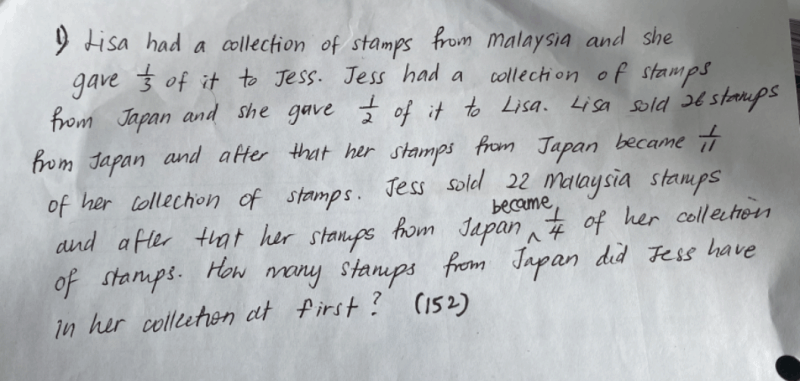 1) Lisa had a collection of stamps from Malaysia and she
gave 1/3 of it to Jess. Jess had a collection of stamps
from Japan and she gave 1/2 of it to Lisa. Lisa sold 26 stamps
from Japan and after that her stamps from Japan became 1/11
of her collection of stamps. Jess sold 22 Malaysia stamps
and after that her stamps from Japan ^ became 1/4 of her collection
of stamps. How many stamps from Japan did Jess have
in her collection at first? (152)